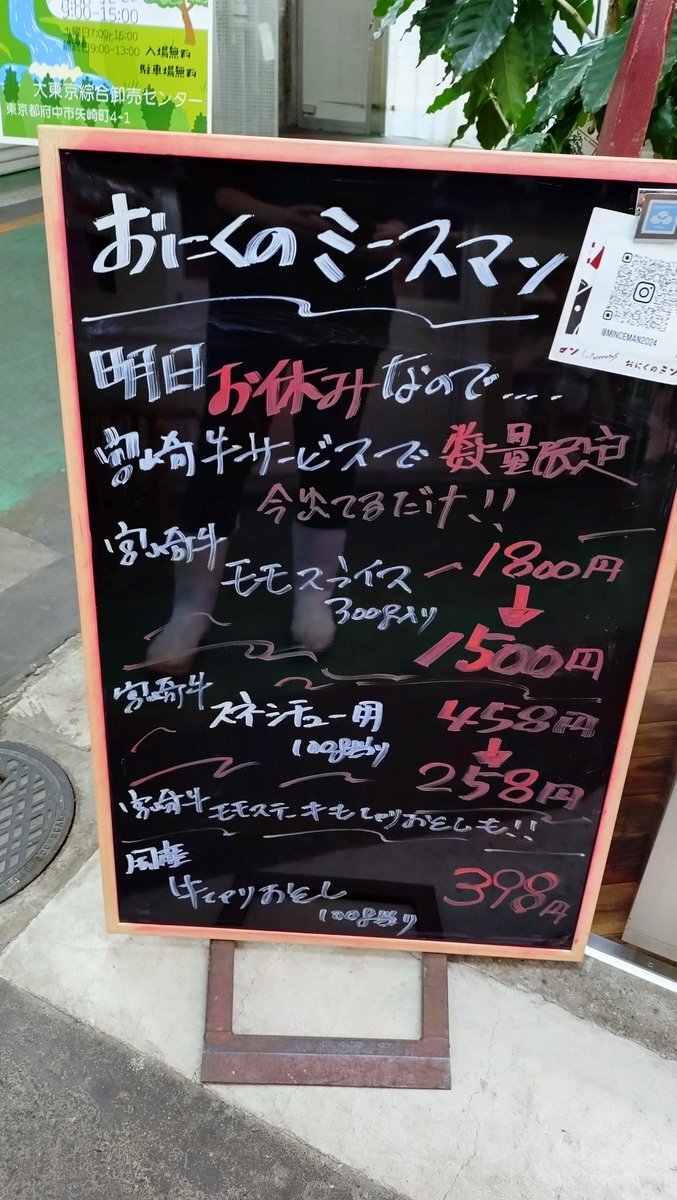 9:00-15:00
土曜日7:00-15:00
最終日9:00-13:00
入場無料
駐車場無料
大東京綜合卸売センター
東京都府中市矢崎町4-1
おにくのミンスマン
@MINCEMAN2024
おにくのミン
明日お休みなので....
宮崎牛サービスで数量限定
今出てるだけ!!
宮崎牛
モモスライス
300g入り
1800円
↓
1500円
宮崎牛
スネシチュー用
100g当り
458円
↓
258円
宮崎牛 モモステーキもキリおとしも!!
国産
牛キリおとし
100g当り
398円